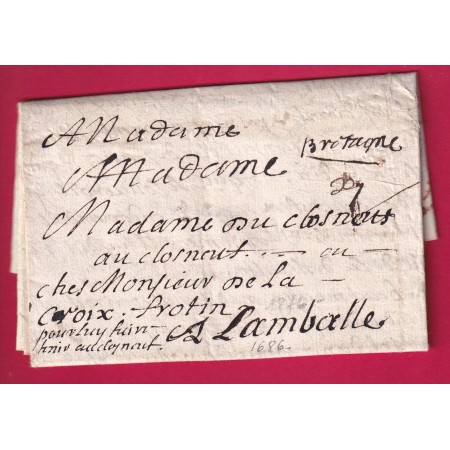 A Madame
Bretagne
A Madame
Madame Du closneuf
au closneuf ou
ches Monsieur De La
Croix frotin
pour luy faire
tenir au closneuf.
A Lamballe
1686